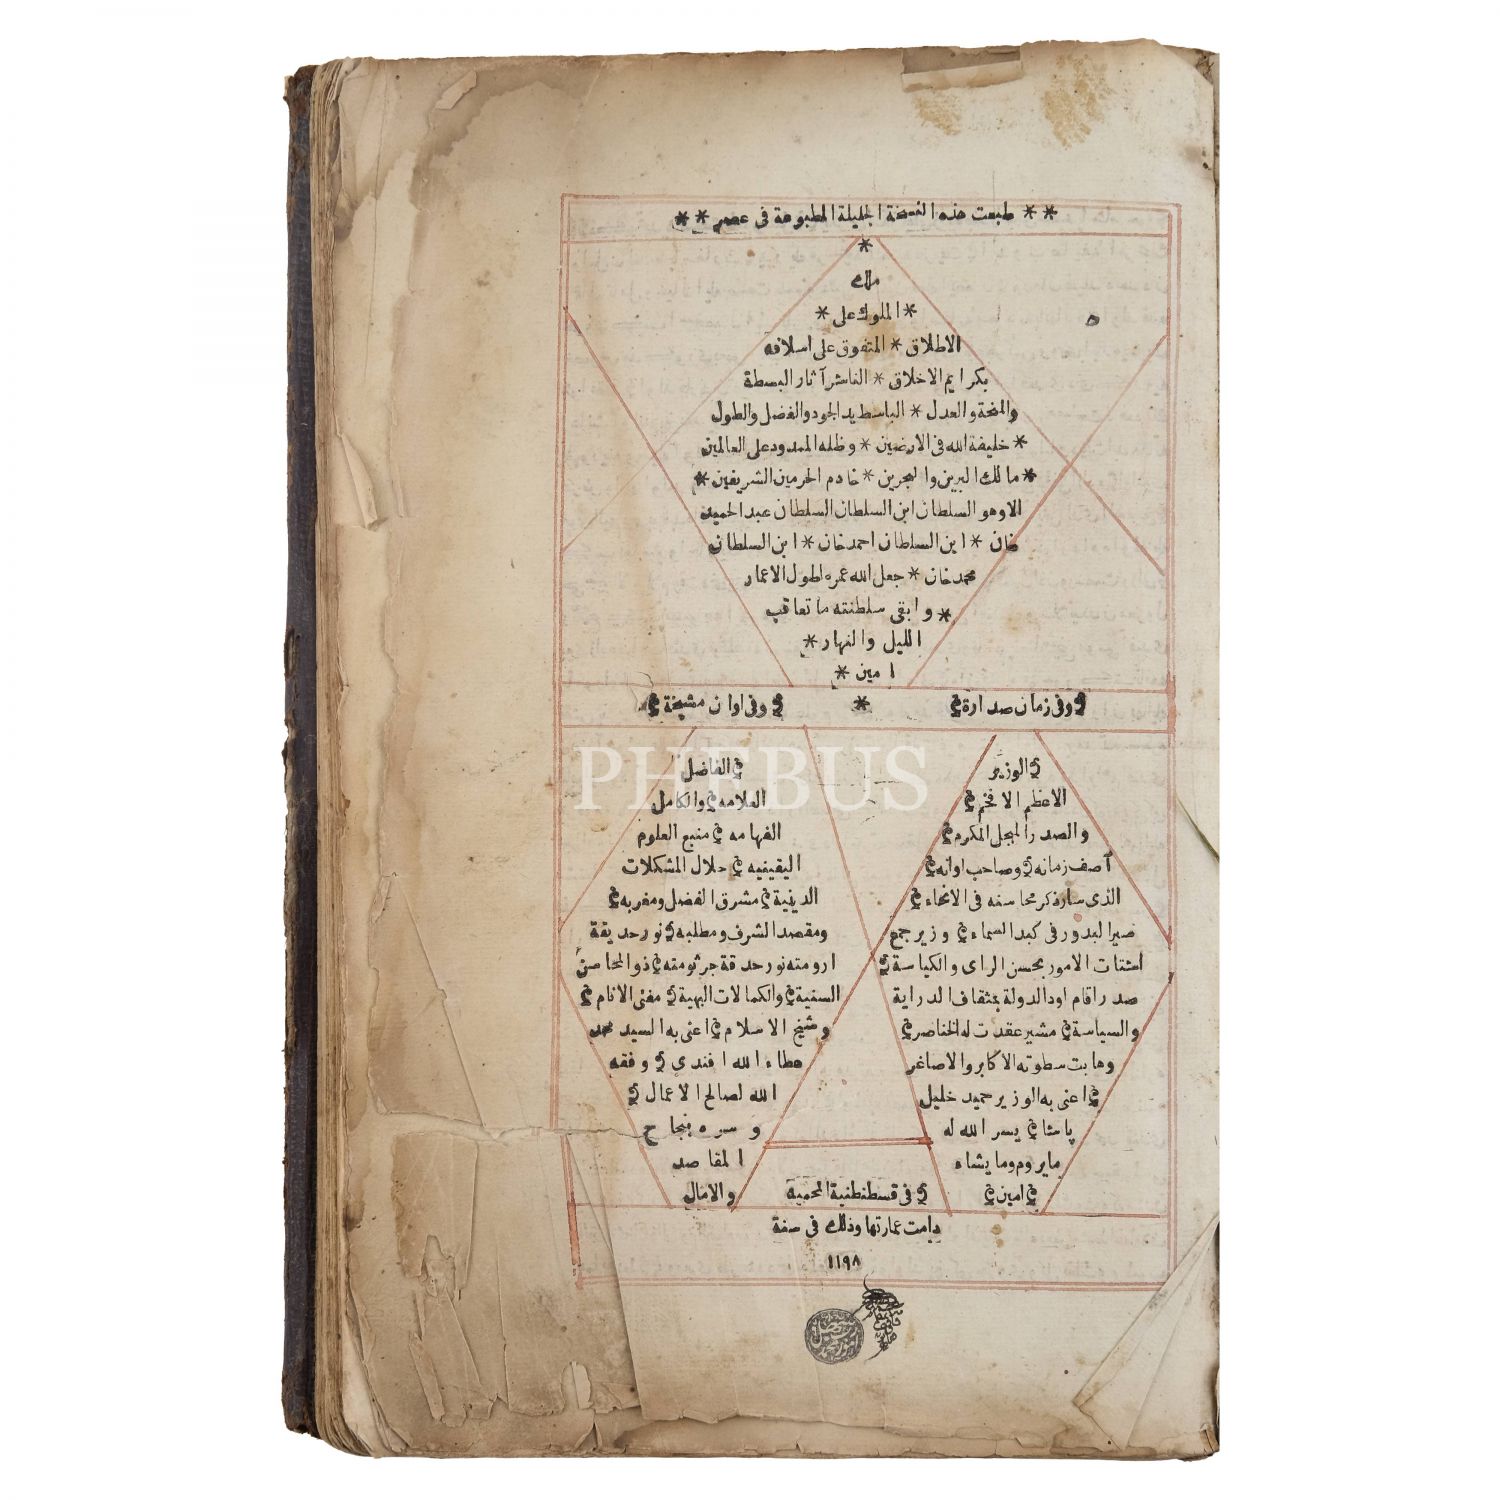 ** طبعت هذه النسخة الجليلة المطبوعة فى عصر **
*
ملك
* الملوك على *
الاطلاق * المتفوق على اسلافه
بكرايم الاخلاق * الناشر آثار البسطة
والمنحة والعدل * الباسط يد الجود والفضل والطول
* خليفة الله فى الارضين * وظله الممدود على العالمين
* مالك البرين والبحرين * خادم الحرمين الشريفين *
الا وهو السلطان ابن السلطان السلطان عبد الحميد
خان * ابن السلطان احمد خان * ابن السلطان
محمد خان * جعل الله عمره اطول الاعمار
* وابقى سلطنته ما تعاقب
الليل والنهار *
امين *
وفى زمان صدارة * وفى اوان مشيخة
الوزير
الاعظم الافخم
والصدر المبجل المكرم
آصف زمانه وصاحب اوانه
الذى سار ذكر محاسنه فى الانحاء
سير البدور فى كبد السماء وزير جمع
اشتات الامور بحسن الراى والكياسة
صدر اقام اود الدولة بثقاف الدراية
والسياسة مشير عقدت له الخناصر
وهابت سطوته الاكابر والاصاغر
اعنى به الوزير حميد خليل
پاشا يسر الله له
ما يروم وما يشاء
امين
الفاضل
العلامه والكامل
الفهامه منبع العلوم
اليقينيه حلال المشكلات
الدينية مشرق الفضل ومغربه
ومقصد الشرف ومطلبه نور حديقة
ارومته نور حدقة جرثومته ذو المحاسن
السنية والكمالات البهية مفتى الانام
وشيخ الاسلام اعنى به السيد محمد
عطاء الله افندى وفقه
الله لصالح الاعمال
وسره بنجاح
المقاصد
والامال
فى قسطنطنية المحمية
دامت عمارتها وذلك فى سنة
١١٩٨
PHEBUS